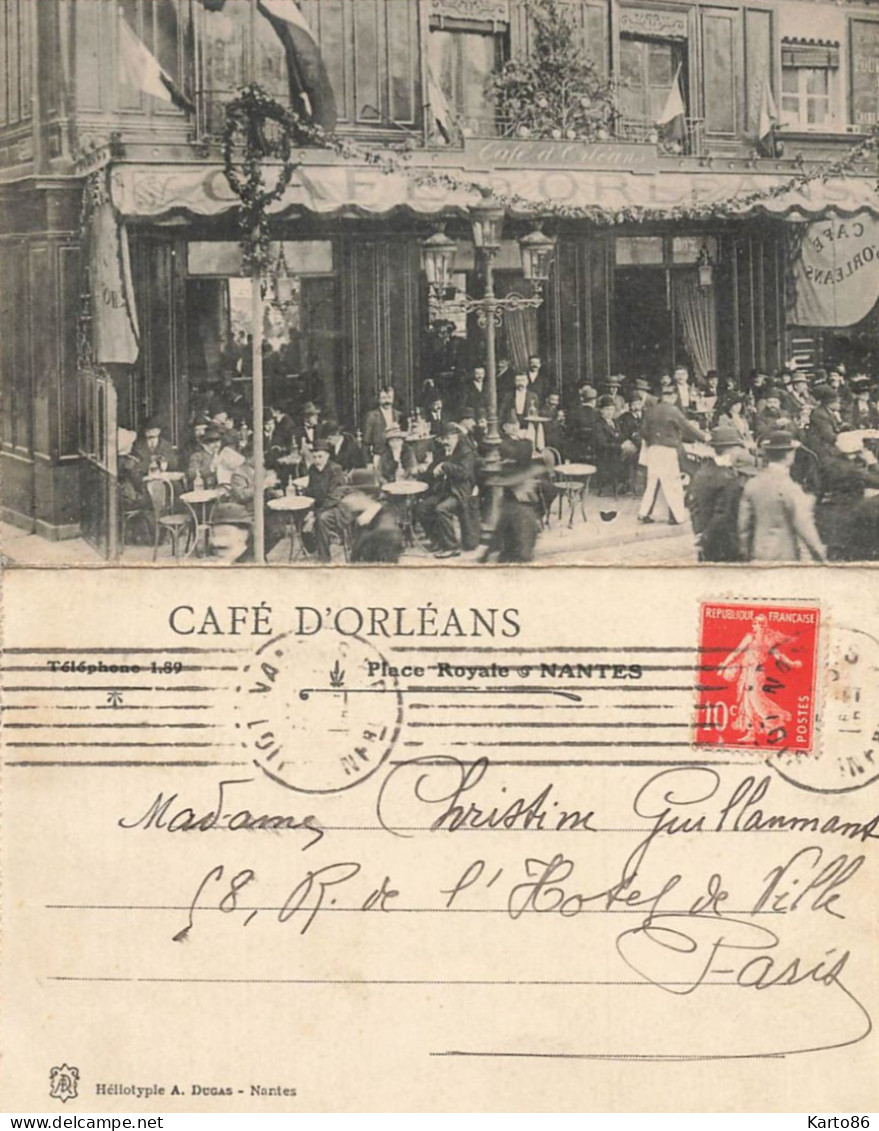 Café d'Orléans
CAFÉ D'ORLÉANS
CAFÉ
D'ORLÉANS
CAFÉ D'ORLÉANS
Téléphone 1.89
Place Royale NANTES
REPUBLIQUE FRANÇAISE
10c
POSTES
Madame Christine Guillaumant
58, R. de l'Hotel de Ville
Paris
Héliotypie A. DUGAS - Nantes
Delcampe.net
Karto86